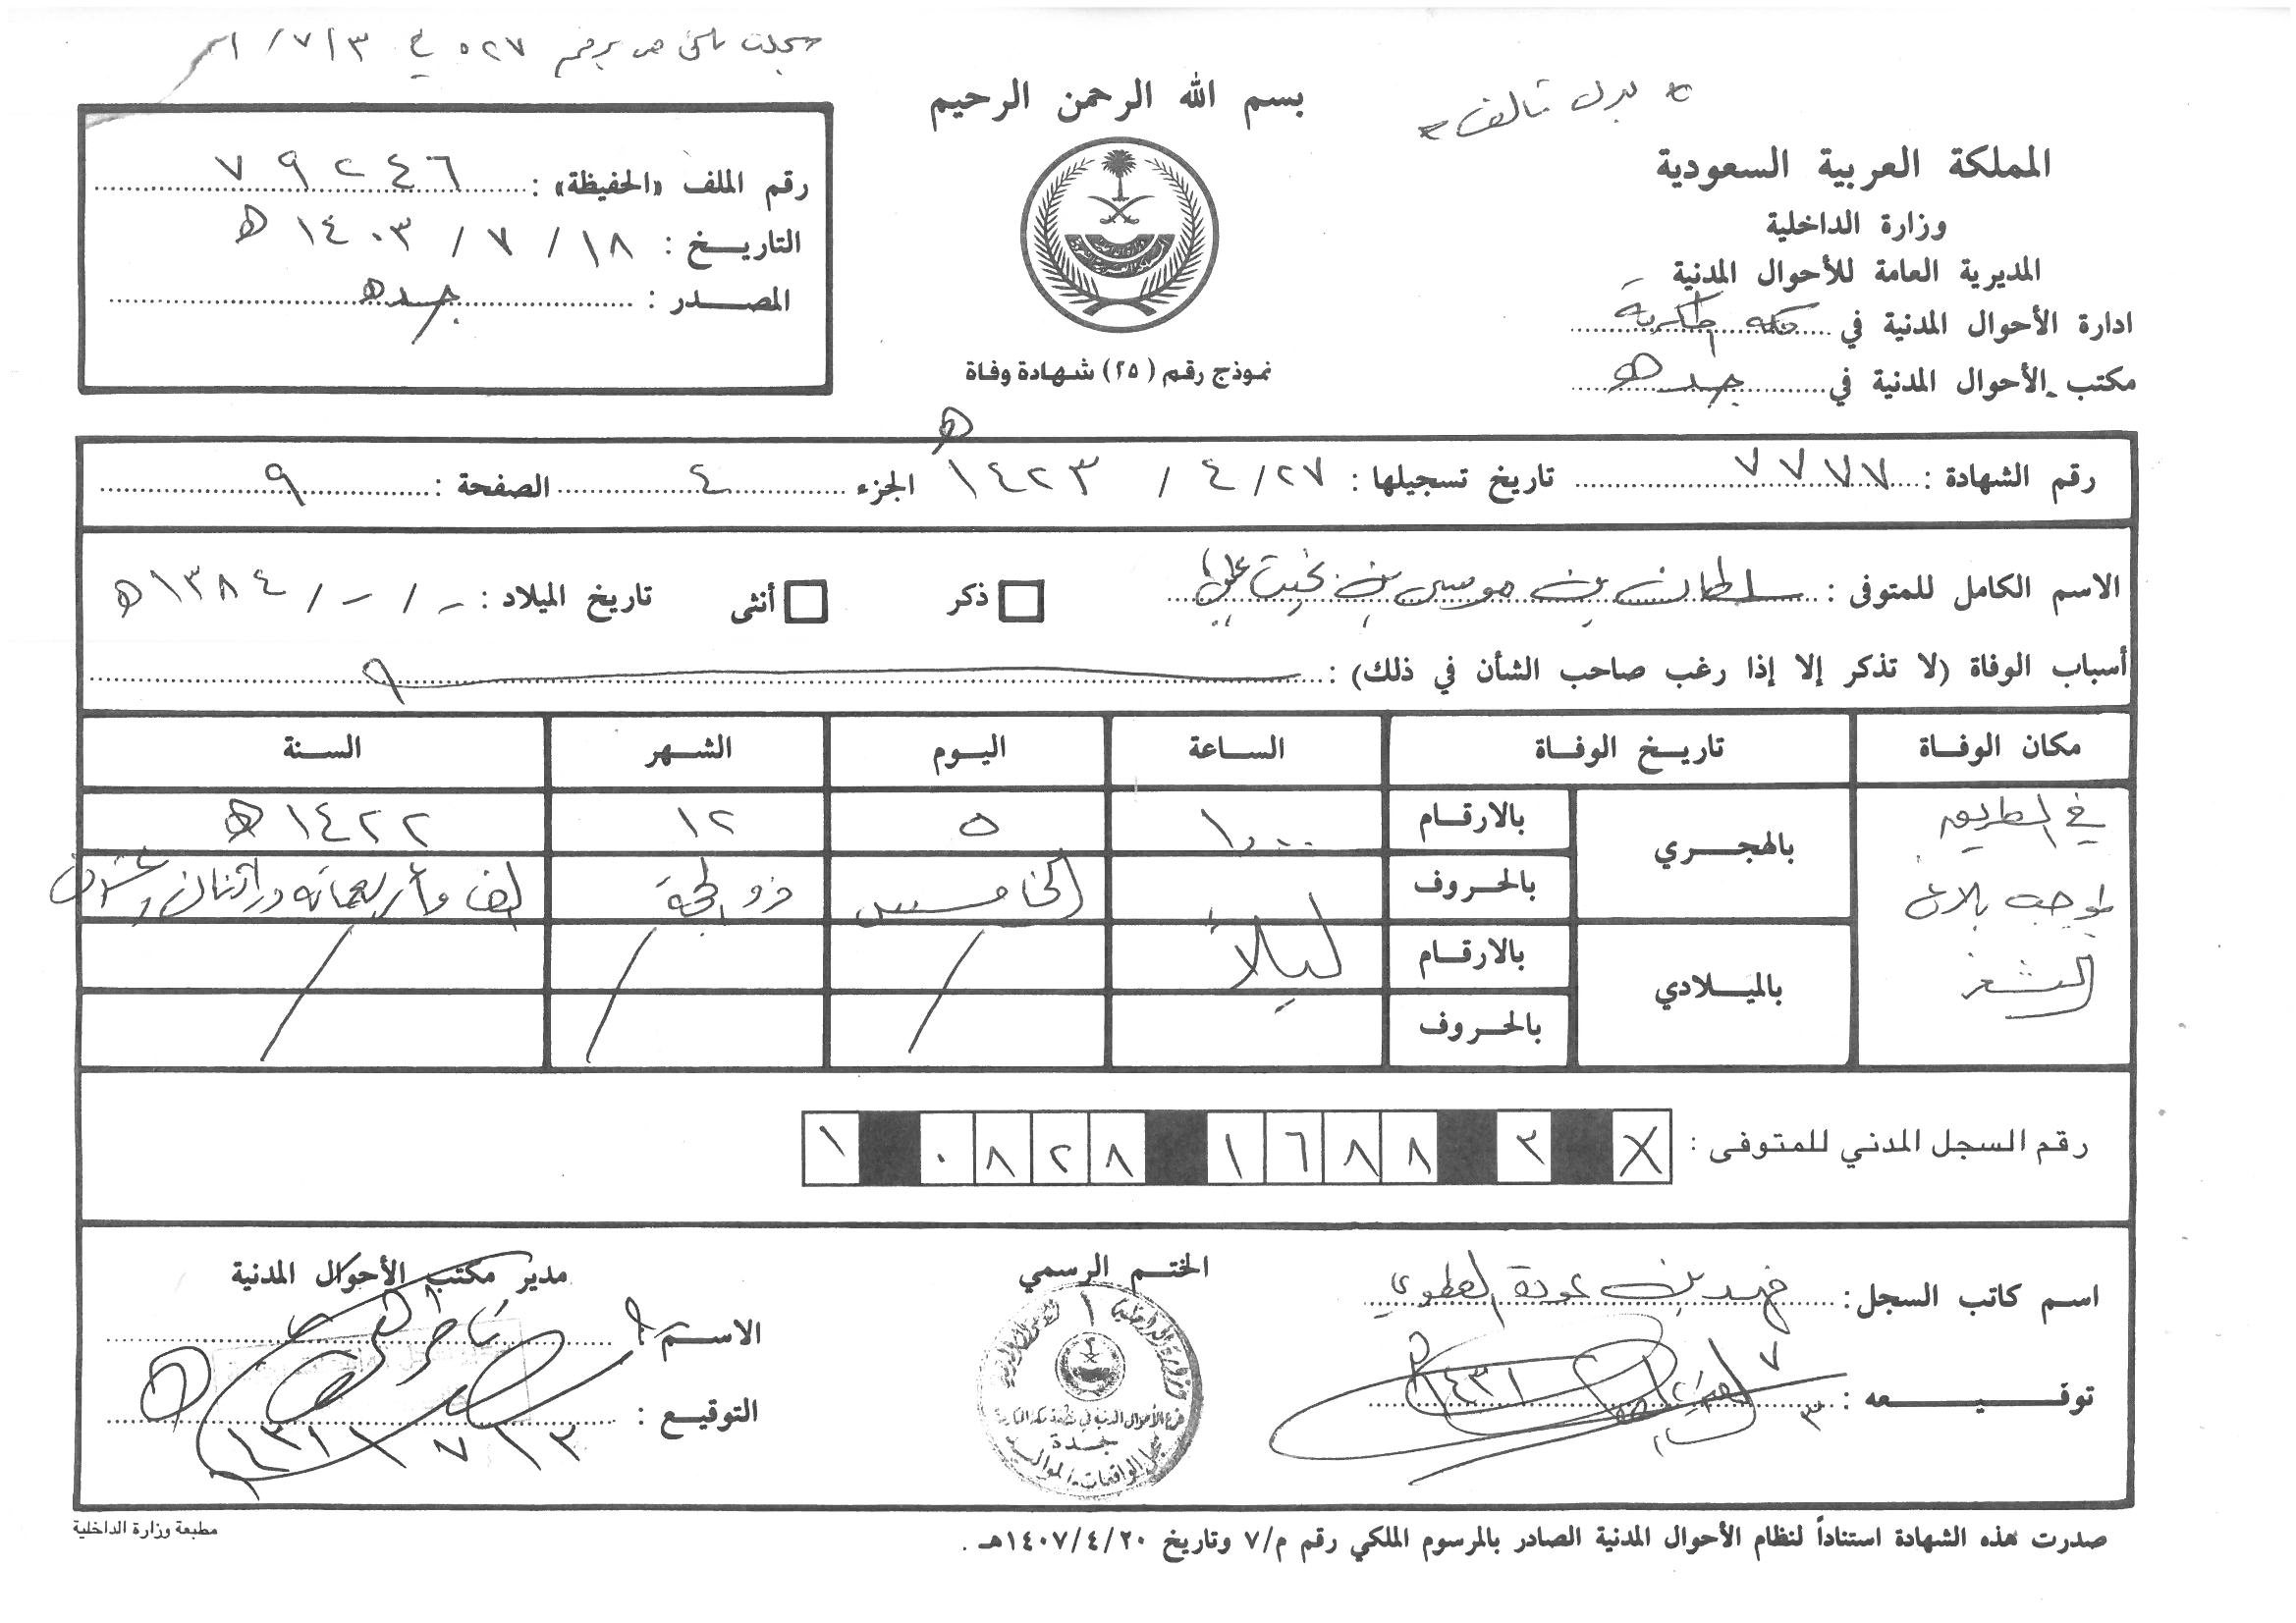 سجلت تحت رقم ٥٢٧ في ٧/٣/
* بدل تالف *
بسم الله الرحمن الرحيم
المملكة العربية السعودية
وزارة الداخلية
المديرية العامة للأحوال المدنية
ادارة الأحوال المدنية في مكة المكرمة
مكتب الأحوال المدنية في جده
نموذج رقم (٢٥) شهادة وفاة
رقم الملف «الحفيظة»: ٧٩٢٤٦
التاريخ: ١٨ / ٧ / ١٤٠٣ هـ
المصدر: جده
رقم الشهادة: ٧٧٧٧ تاريخ تسجيلها: ٢٧ / ٤ / ١٤٢٣ هـ الجزء ٤ الصفحة: ٩
الاسم الكامل للمتوفى: سلطان بن موسى بن بخيت ذكر أنثى تاريخ الميلاد: - / - / ١٣٨٤ هـ
أسباب الوفاة (لا تذكر إلا إذا رغب صاحب الشأن في ذلك):
مكان الوفاة تاريخ الوفاة الساعة اليوم الشهر السنة
في الطريق بموجب بلاغ
بالهجري بالارقام ١٠٠٠ ٥ ١٢ ١٤٢٢ هـ
بالحروف ليلاً الخامس ذو الحجة الف وأربعمائة واثنان وعشرون
بالميلادي بالارقام
بالحروف
رقم السجل المدني للمتوفى: X ٣ ٨ ٨ ٦ ١ ٨ ٢ ٨ ٠ ١
اسم كاتب السجل: فهد بن عودة العطوي
توقيعه:
الختم الرسمي
فرع الأحوال المدنية في منطقة مكة المكرمة
جدة
مدير مكتب الأحوال المدنية
الاسم:
التوقيع:
صدرت هذه الشهادة استناداً لنظام الأحوال المدنية الصادر بالمرسوم الملكي رقم م/٧ وتاريخ ١٤٠٧/٤/٢٠هـ .
مطبعة وزارة الداخلية